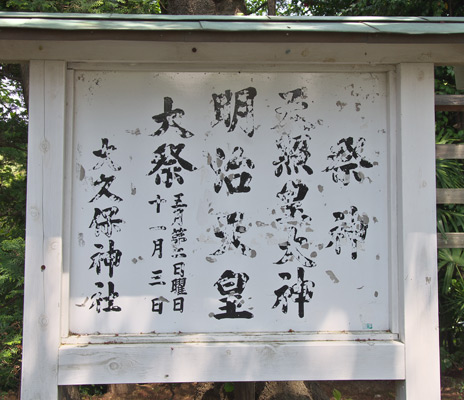 祭神
天照皇大神
明治天皇
大祭
五月第日曜日
十一月三日
大久保神社